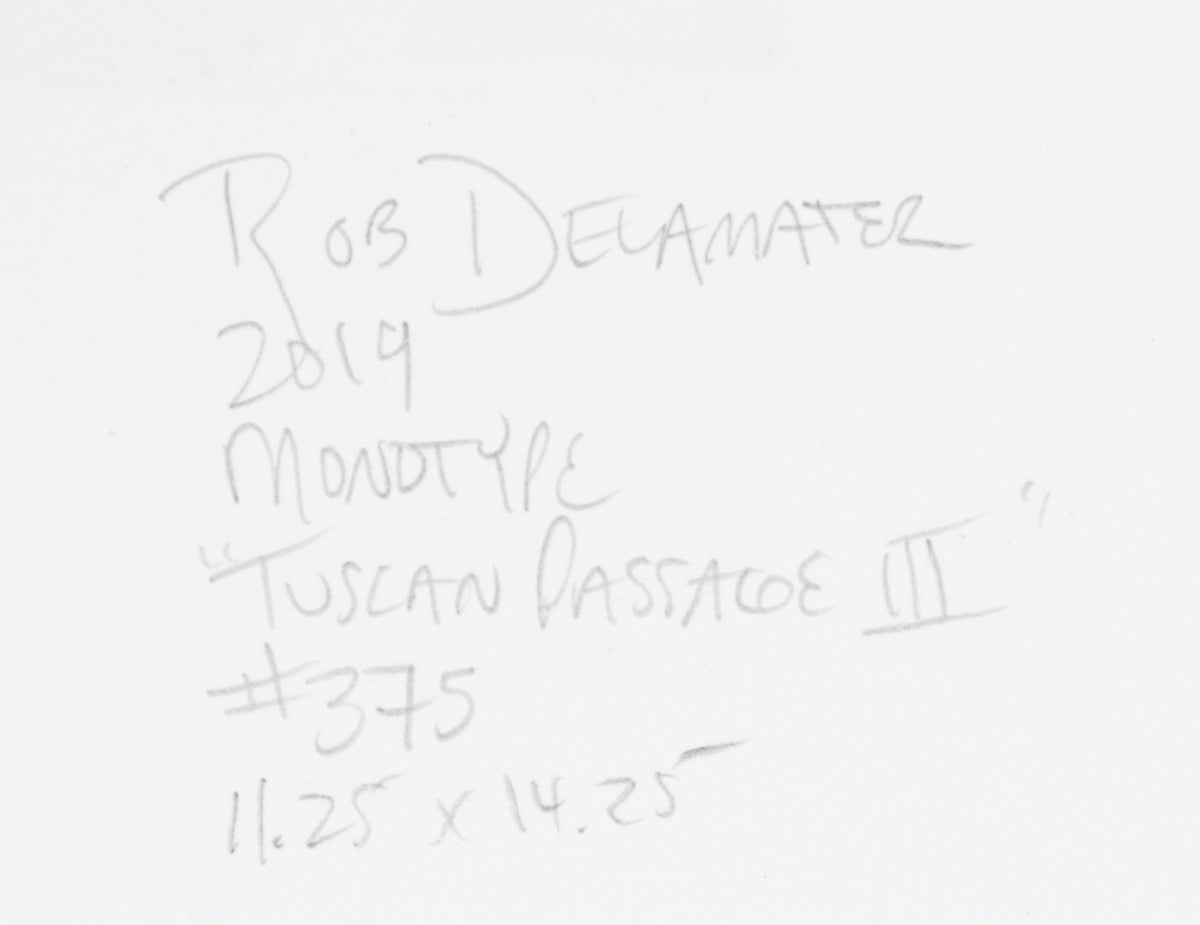 ROB DELAMATER
2019
MONOTYPE
"TUSCAN PASSAGE III"
#375
11.25 x 14.25